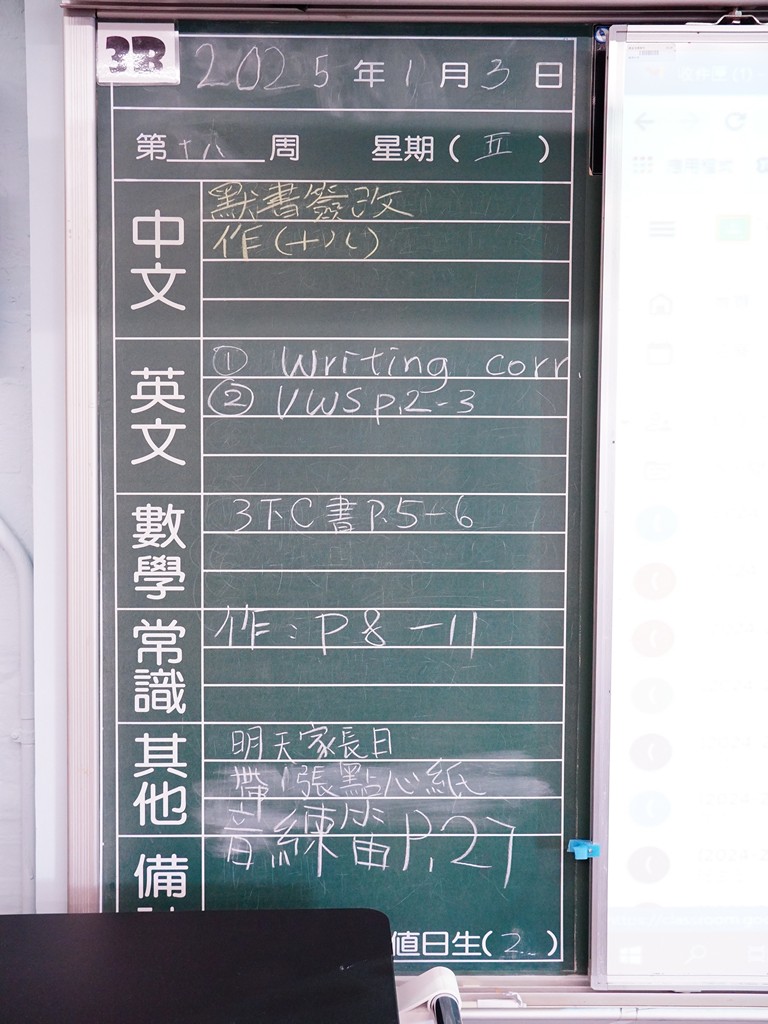 3B
2025年1月3日
第十八周 星期(五)
中文
默書簽改
作(十八)
英文
① Writing corr
② VWS p.2-3
數學
3下C書P.5-6
常識
作:P8-11
其他
明天家長日
帶1張點心紙
音練笛P.27
備
值日生(2)